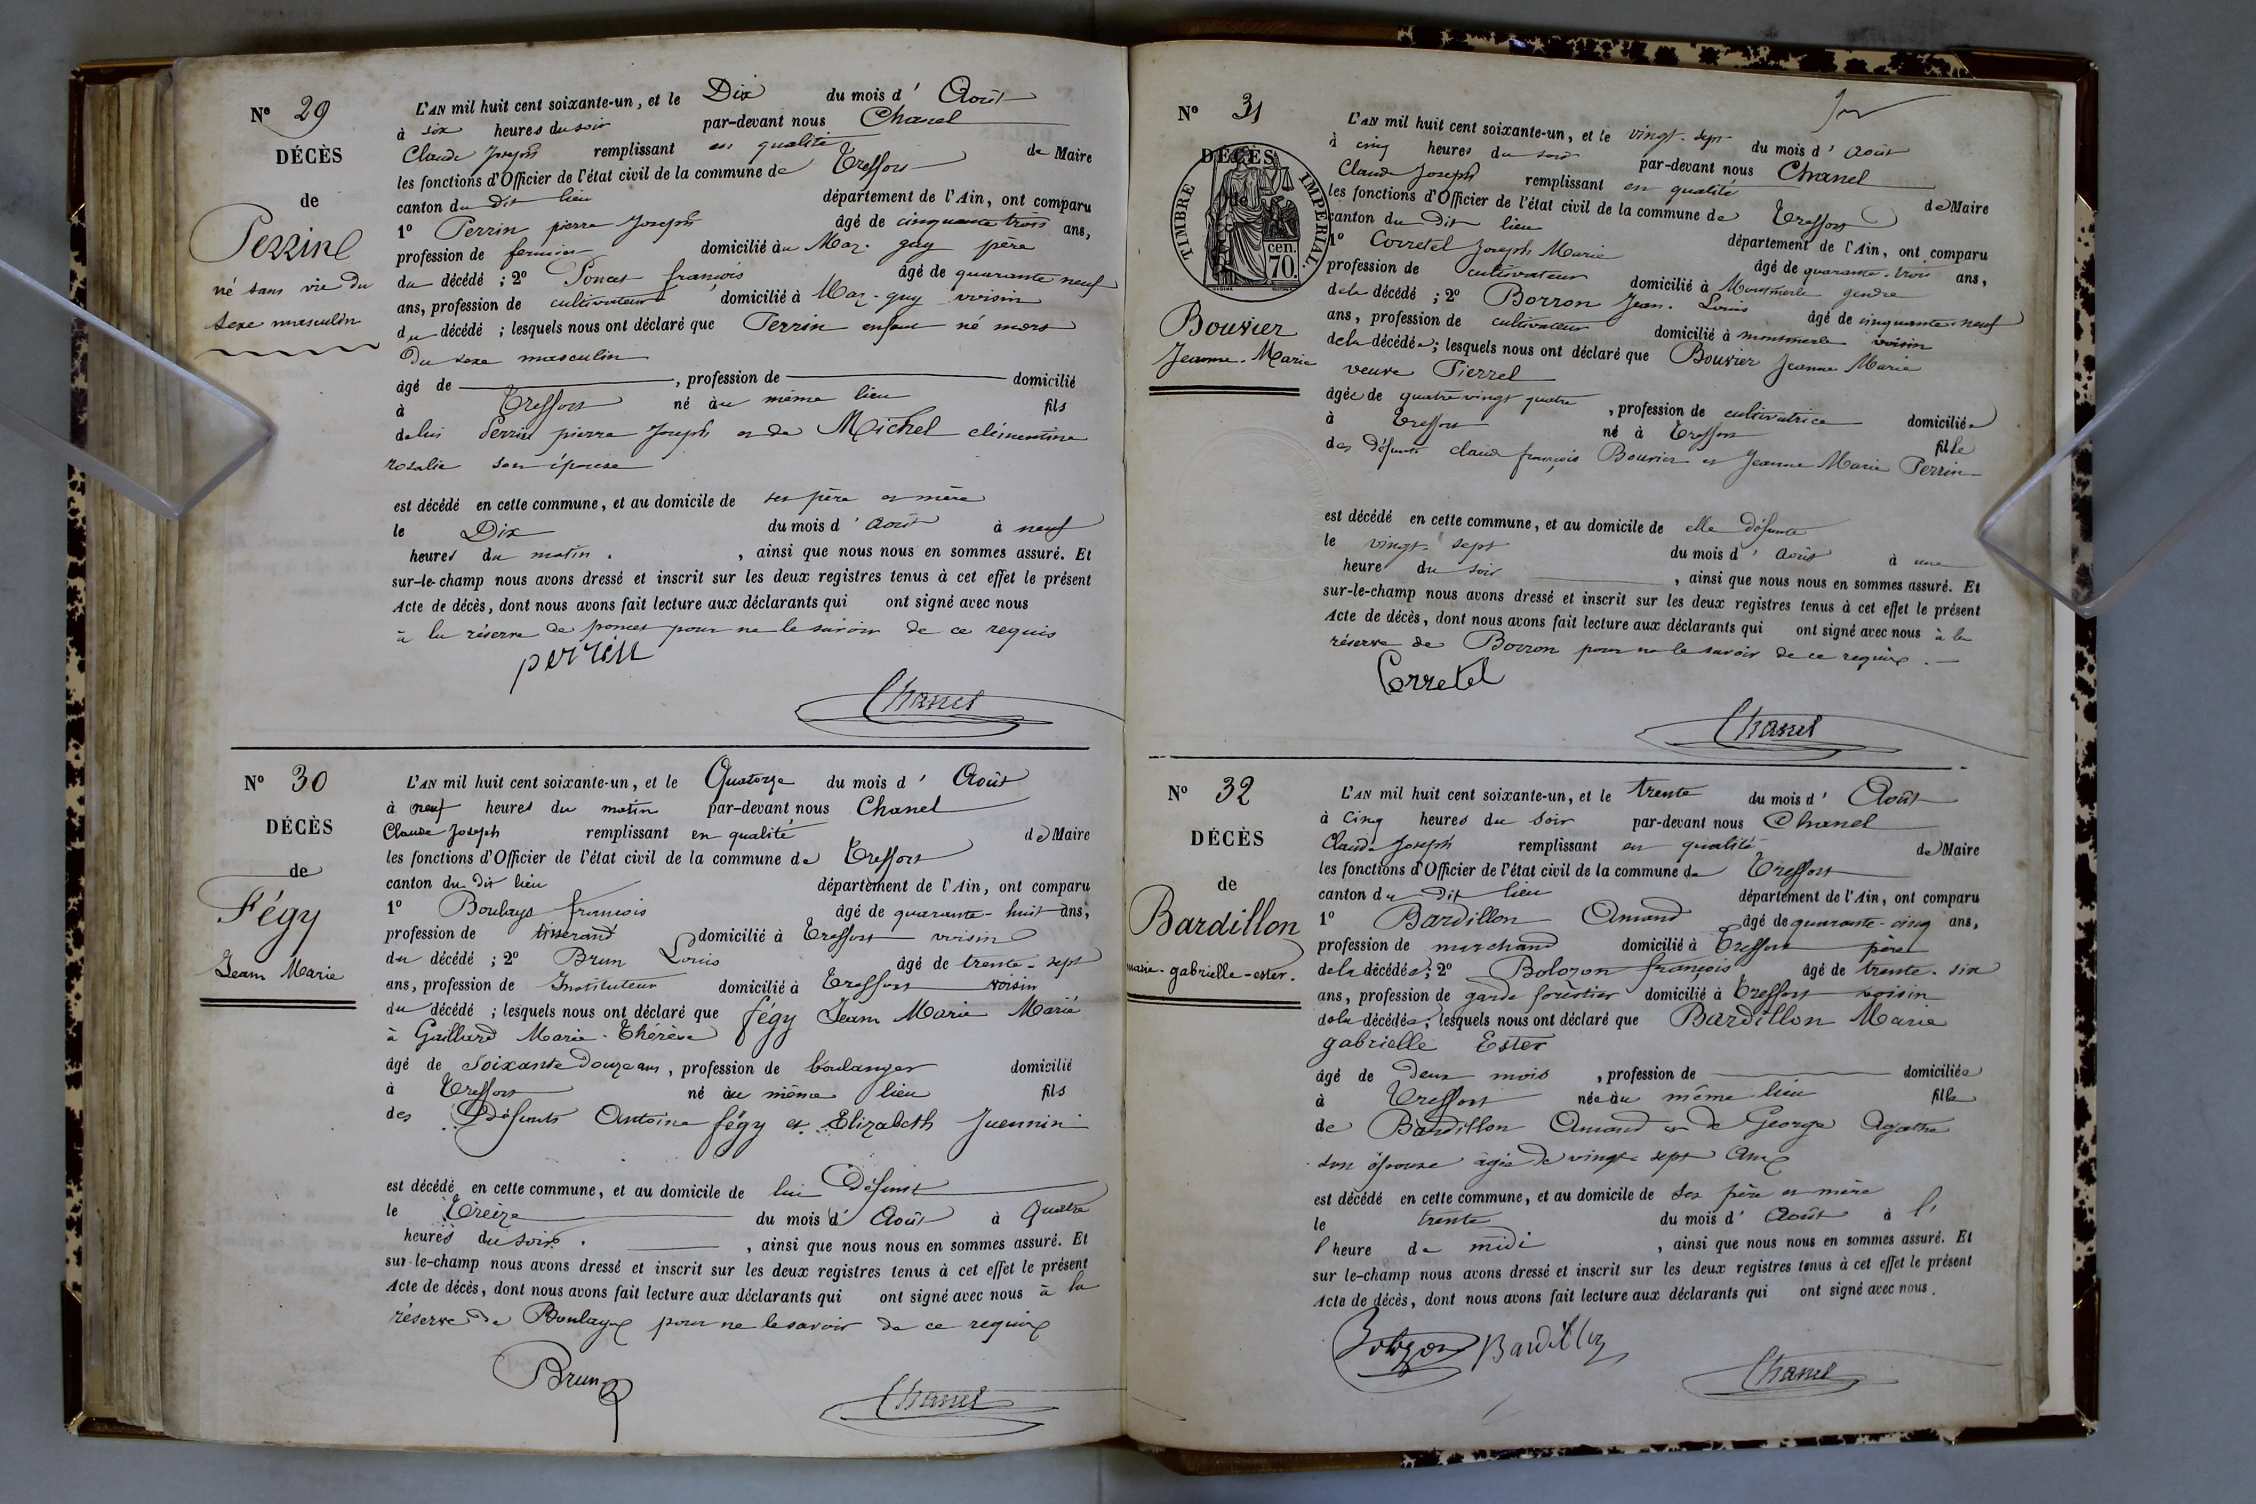 N° 29
DÉCÈS
de
Perrin
né sans vie du
sexe masculin
L'AN mil huit cent soixante-un, et le Dix du mois d' Août
à six heures du soir par-devant nous Chanel
Claude Joseph remplissant en qualité de Maire
les fonctions d'Officier de l'état civil de la commune de Treffort
canton du dit lieu département de l'Ain, ont comparu
1° Perrin pierre Joseph âgé de cinquante trois ans,
profession de fermier domicilié au Maz-guy père
du décédé ; 2° Poncet françois âgé de quarante neuf
ans, profession de cultivateur domicilié à Maz-guy voisin
du décédé ; lesquels nous ont déclaré que Perrin enfant né mort
du sexe masculin
âgé de , profession de domicilié
à Treffort né au même lieu fils
de lui Perrin pierre Joseph et de Michel clémentine
rosalie son épouse
est décédé en cette commune, et au domicile de ses père et mère
le Dix du mois d' août à neuf
heures du matin. , ainsi que nous nous en sommes assuré. Et
sur-le-champ nous avons dressé et inscrit sur les deux registres tenus à cet effet le présent
Acte de décès, dont nous avons fait lecture aux déclarants qui ont signé avec nous
à la réserve de poncet pour ne le savoir de ce requis
perrin
Chanel
N° 30
DÉCÈS
de
Fégy
Jean Marie
L'AN mil huit cent soixante-un, et le Quatorze du mois d' Août
à neuf heures du matin par-devant nous Chanel
Claude Joseph remplissant en qualité de Maire
les fonctions d'Officier de l'état civil de la commune de Treffort
canton du dit lieu département de l'Ain, ont comparu
1° Boulays françois âgé de quarante-huit ans,
profession de tisserand domicilié à Treffort voisin
du décédé ; 2° Brun Louis âgé de trente-sept
ans, profession de Instituteur domicilié à Treffort voisin
du décédé ; lesquels nous ont déclaré que fégy Jean Marie Marié
à Gaillard Marie-Thérèse
âgé de soixante douze ans, profession de boulanger domicilié
à Treffort né au même lieu fils
des Défunts Antoine fégy et Elizabeth Juennin
est décédé en cette commune, et au domicile de lui Défunt
le Treize du mois d' Août à Quatre
heures du soir. , ainsi que nous nous en sommes assuré. Et
sur-le-champ nous avons dressé et inscrit sur les deux registres tenus à cet effet le présent
Acte de décès, dont nous avons fait lecture aux déclarants qui ont signé avec nous à la
réserve de Boulays pour ne le savoir de ce requis
Brun
Chanel
N° 31
DÉCÈS
de
TIMBRE IMPÉRIAL
cen.
70.
Bouvier
Jeanne-Marie
L'AN mil huit cent soixante-un, et le vingt-sept du mois d' Août
à cinq heures du soir par-devant nous Chanel
Claude Joseph remplissant en qualité de Maire
les fonctions d'Officier de l'état civil de la commune de Treffort
canton du dit lieu département de l'Ain, ont comparu
1° Corretel Joseph Marie âgé de quarante-trois ans,
profession de cultivateur domicilié à Montmerle gendre
de la décédé ; 2° Borron Jean-Louis âgé de cinquante-neuf
ans, profession de cultivateur domicilié à montmerle voisin
de la décédée ; lesquels nous ont déclaré que Bouvier Jeanne Marie
veuve Pierrel
âgée de quatre vingt quatre , profession de cultivatrice domiciliée
à Treffort né à Treffort fille
des Défunts claude françois Bouvier et Jeanne Marie Perrin
est décédé en cette commune, et au domicile de elle défunte
le vingt-sept du mois d' août à une
heure du soir , ainsi que nous nous en sommes assuré. Et
sur-le-champ nous avons dressé et inscrit sur les deux registres tenus à cet effet le présent
Acte de décès, dont nous avons fait lecture aux déclarants qui ont signé avec nous à la
réserve de Borron pour ne le savoir de ce requis.
Corretel
Chanel
N° 32
DÉCÈS
de
Bardillon
marie-gabrielle-ester.
L'AN mil huit cent soixante-un, et le trente du mois d' Août
à cinq heures du soir par-devant nous Chanel
Claude Joseph remplissant en qualité de Maire
les fonctions d'Officier de l'état civil de la commune de Treffort
canton du dit lieu département de l'Ain, ont comparu
1° Bardillon Amand âgé de quarante-cinq ans,
profession de marchand domicilié à Treffort père
de la décédée ; 2° Bolozon françois âgé de trente-six
ans, profession de garde forestier domicilié à Treffort voisin
de la décédée ; lesquels nous ont déclaré que Bardillon Marie
gabrielle Ester
âgé de deux mois , profession de domiciliée
à Treffort née au même lieu fille
de Bardillon Amand et de George Agathe
son épouse âgée de vingt-sept ans
est décédé en cette commune, et au domicile de ses père et mère
le trente du mois d' Août à l'
heure de midi , ainsi que nous nous en sommes assuré. Et
sur le-champ nous avons dressé et inscrit sur les deux registres tenus à cet effet le présent
Acte de décès, dont nous avons fait lecture aux déclarants qui ont signé avec nous.
Bolozon Bardillon
Chanel